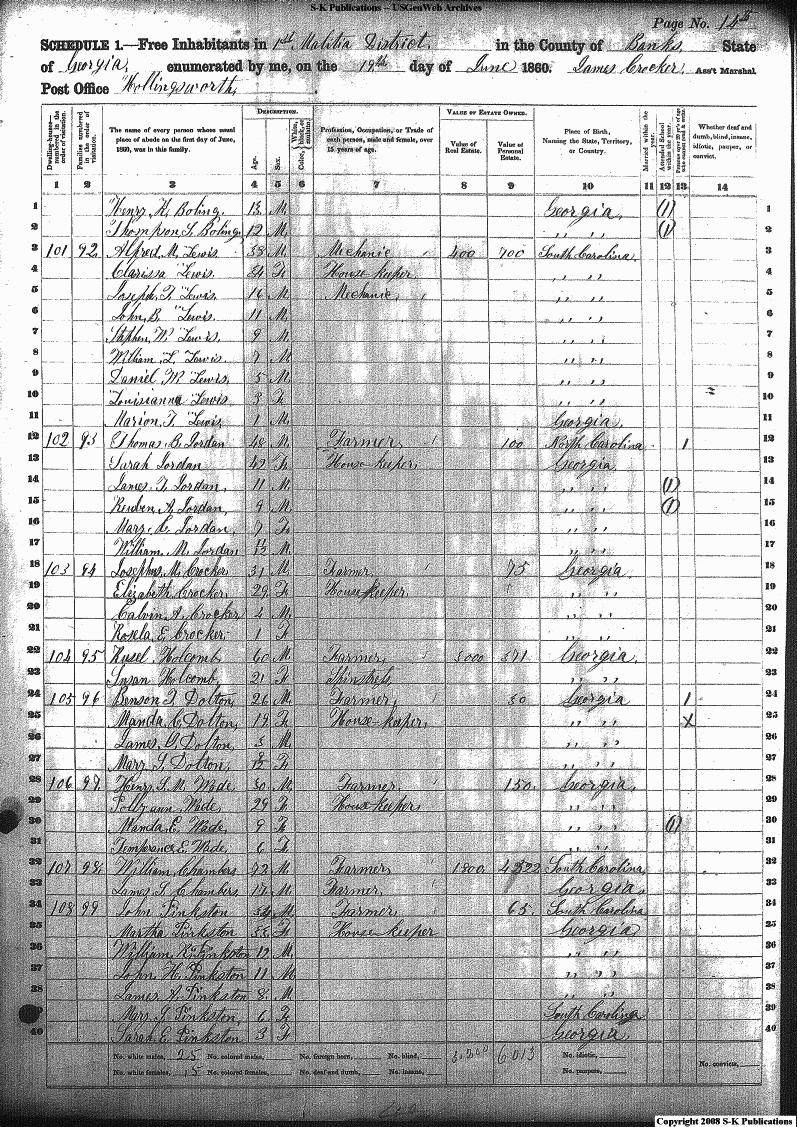 S-K Publications – USGenWeb Archives
Page No. 145
SCHEDULE 1.—Free Inhabitants in 1st Malitia District. in the County of Banks, State
of Georgia, enumerated by me, on the 19th day of June 1860. James Crocker, Ass't Marshal
Post Office Hollingsworth,
DESCRIPTION. VALUE OF ESTATE OWNED.
Dwelling-houses numbered in the order of visitation. Families numbered in the order of visitation. The name of every person whose usual place of abode on the first day of June, 1860, was in this family. Age. Sex. Color, Profession, Occupation, or Trade of each person, male and female, over 15 years of age. Value of Real Estate. Value of Personal Estate. Place of Birth, Naming the State, Territory, or Country. Married within the year. Attended School within the year. Whether deaf and dumb, blind, insane, idiotic, pauper, or convict.
1 2 3 4 5 6 7 8 9 10 11 12 13 14
1 Henry H. Boling. 13 M. Georgia, (1) 1
2 Thompson S. Boling, 12 M. " " (1) 2
3 101 92 Alfred M. Lewis 33 M. Mechanic 400 700 South Carolina 3
4 Clarissa Lewis. 34 F. House keeper " " 4
5 Joseph T. Lewis. 16 M. Mechanic, " " 5
6 John B. Lewis. 11 M. " " 6
7 Stephen W. Lewis. 9 M. " " 7
8 William L. Lewis. 7 M. " " 8
9 Daniel W. Lewis. 5 M. " " 9
10 Louisianna Lewis 3 F. " " 10
11 Marion T. Lewis. 1 M. Georgia. 11
12 102 93 Thomas B. Jordan 48 M. Farmer, 100 North Carolina 1 12
13 Sarah Jordan 42 F. House keeper, Georgia 13
14 James T. Jordan, 11 M. " " (1) 14
15 Reuben A. Jordan, 9 M. " " (1) 15
16 Mary Jordan, 7 F. " " 16
17 William M. Jordan 11/12 M. " " 17
18 103 94 Josephus M. Crocker 31 M Farmer, 75 Georgia 18
19 Elizabeth Crocker, 29 F. House keeper, " " 19
20 Calvin A. Crocker 4 M. " " 20
21 Rosela E. Crocker. 1 F. " " 21
22 104 95 Rusel Holcomb 60 M. Farmer, 3000 371 Georgia 22
23 Susan Holcomb, 21 F. Spinstress " " 23
24 105 96 Benson T. Dolton, 26 M. Farmer, 50 Georgia 1 24
25 Manda C. Dolton, 19 F. House-keeper, " " X 25
26 James G. Dolton 3 M. " " 26
27 Mary T. Dolton, F. " " 27
28 106 97 Henry S. M. Wade, 30 M. Farmer, 150. Georgia, 28
29 Pollyann Wade, 29 F. House keeper, " " 29
30 Manda E. Wade, 9 F. " " (1) 30
31 Temperance E. Wade, 6 F. " " 31
32 107 98 William Chambers 72 M. Farmer 1800 4522 South Carolina 32
33 James S. Chambers 17 M. Farmer, Georgia. 33
34 108 99 John Pinkston 34 M. Farmer 65. South Carolina 34
35 Martha Pinkston 33 F. House keeper Georgia 35
36 William R. Pinkston 12 M. " " 36
37 John H. Pinkston 11 M " " 37
38 James A. Pinkston 8. M. " " 38
39 Mary S. Pinkston, 6 F. South Carolina 39
40 Sarah E. Pinkston 3 F. Georgia. 40
No. white males, 25 No. colored males, No. foreign born, No. blind, 6013 No. idiotic,
No. white females, 15 No. colored females, No. deaf and dumb, No. insane, No. paupers, No. convicts,
Copyright 2008 S-K Publications